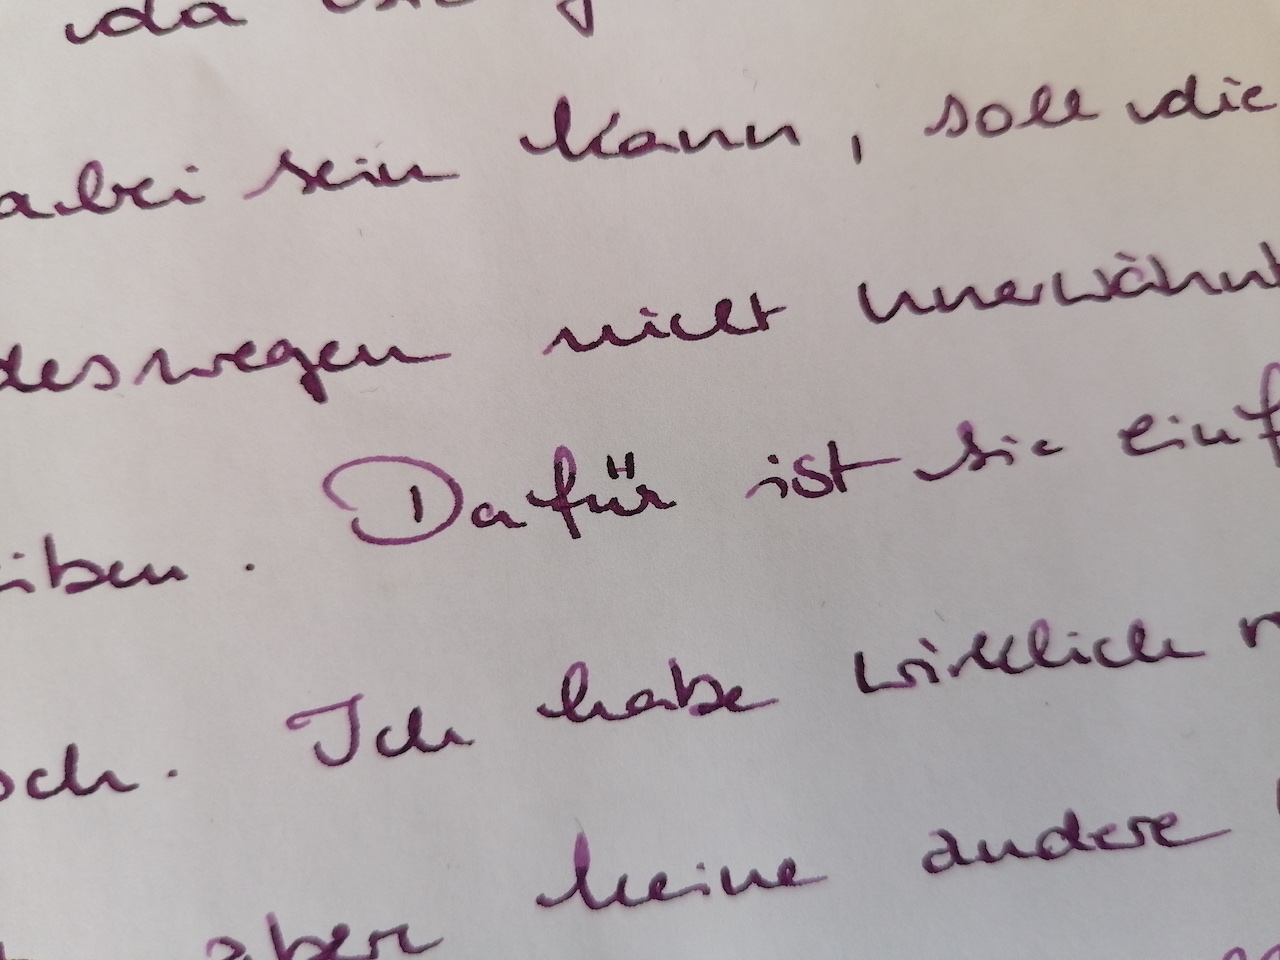 da
abei sein kann, soll die
deswegen nicht unerwähnt
iben. Dafür ist sie einf
och. Ich habe wirklich
aber keine andere